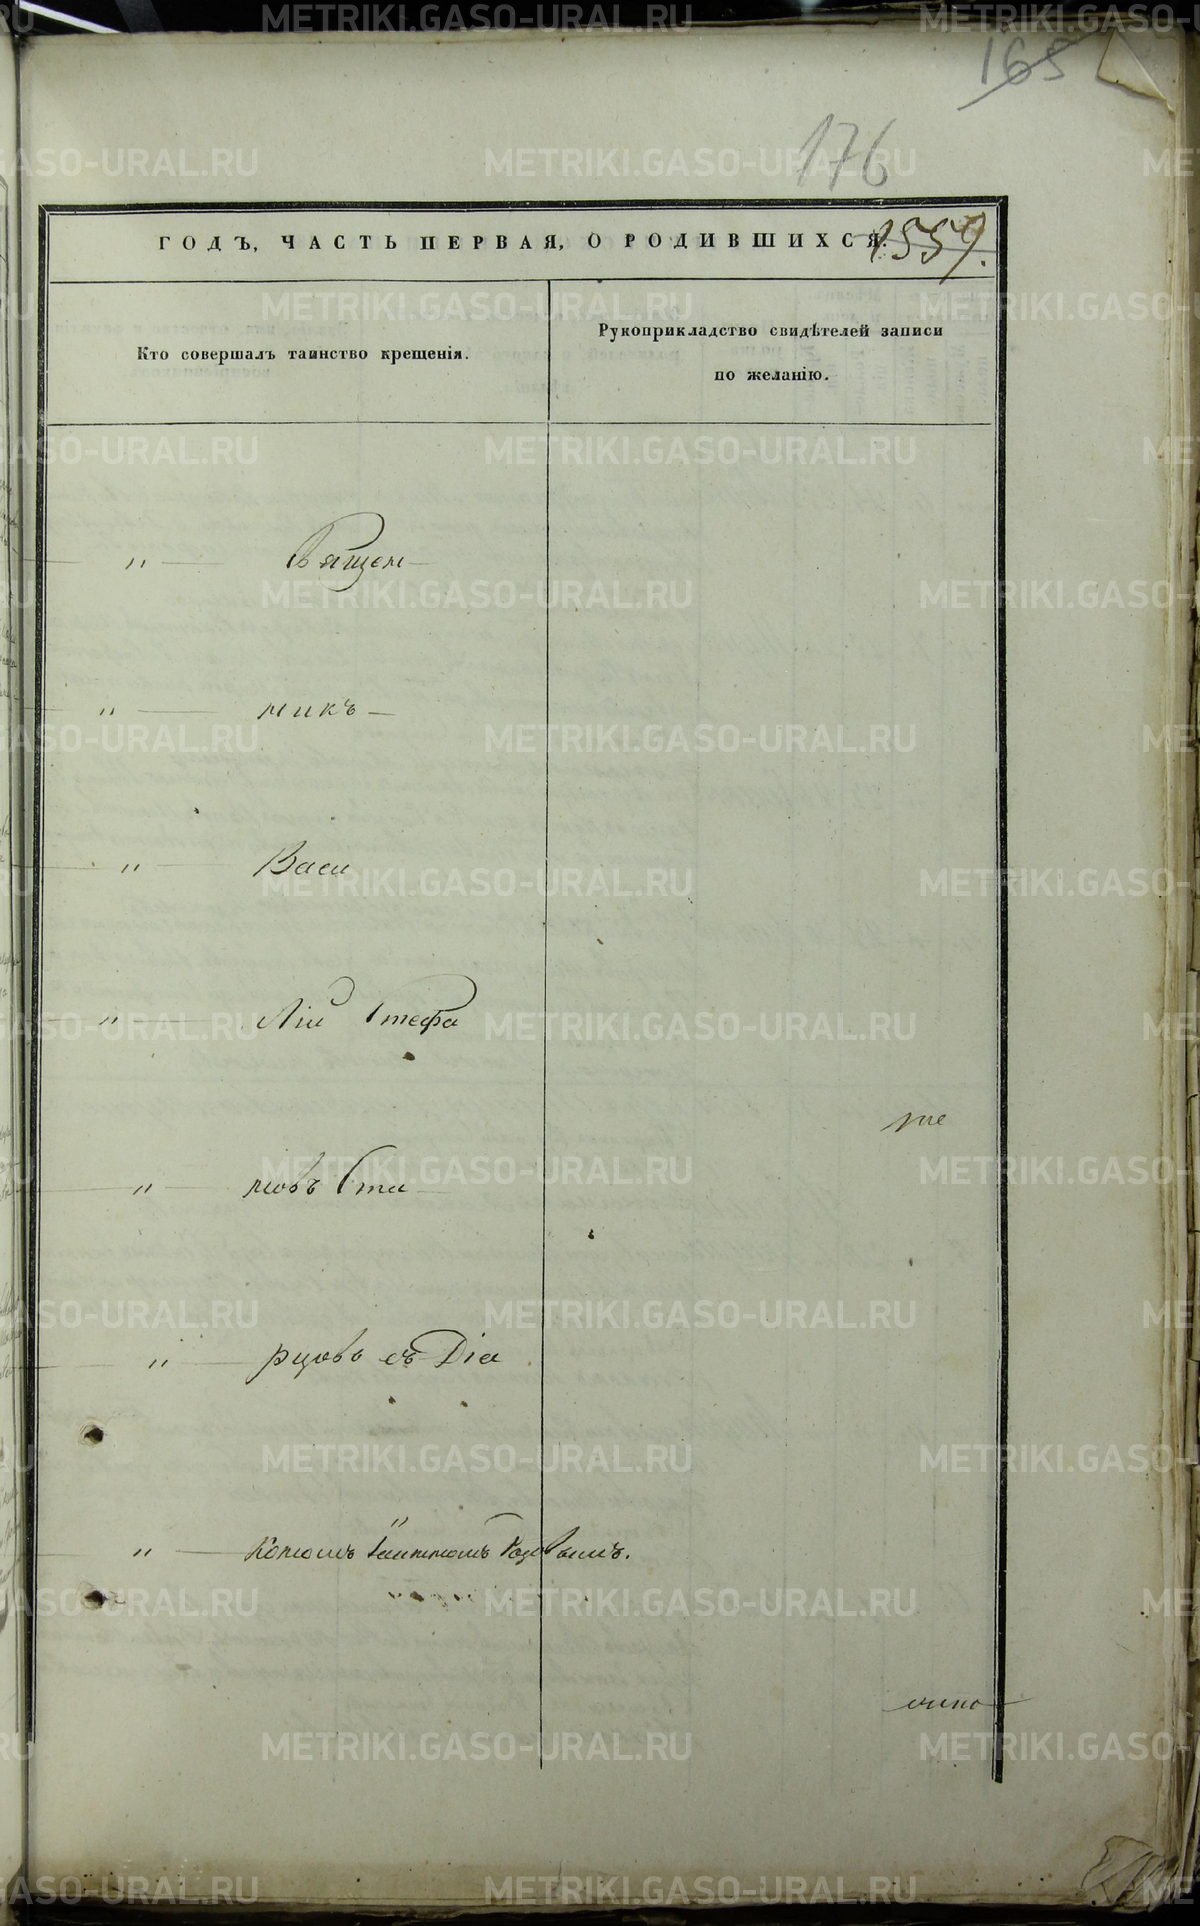 165
176
ГОДЪ, ЧАСТЬ ПЕРВАЯ, О РОДИВШИХСЯ.
1559.
Кто совершалъ таинство крещенія.
Рукоприкладство свидѣтелей записи
по желанію.
" — Священ-
" — никъ —
" — Васи
" — лій Стефа
" — новъ Сти
" — рцовъ съ Діа
" — кономъ
METRIKI.GASO-URAL.RU